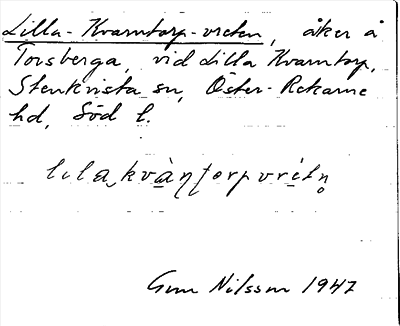 Lilla-Kvarntorp-vreten, åker å
Torsberga, vid Lilla Kvarntorp,
Stenkvista sn, Öster-Rekarne
hd, Söd l.
Gun Nilsson 1947